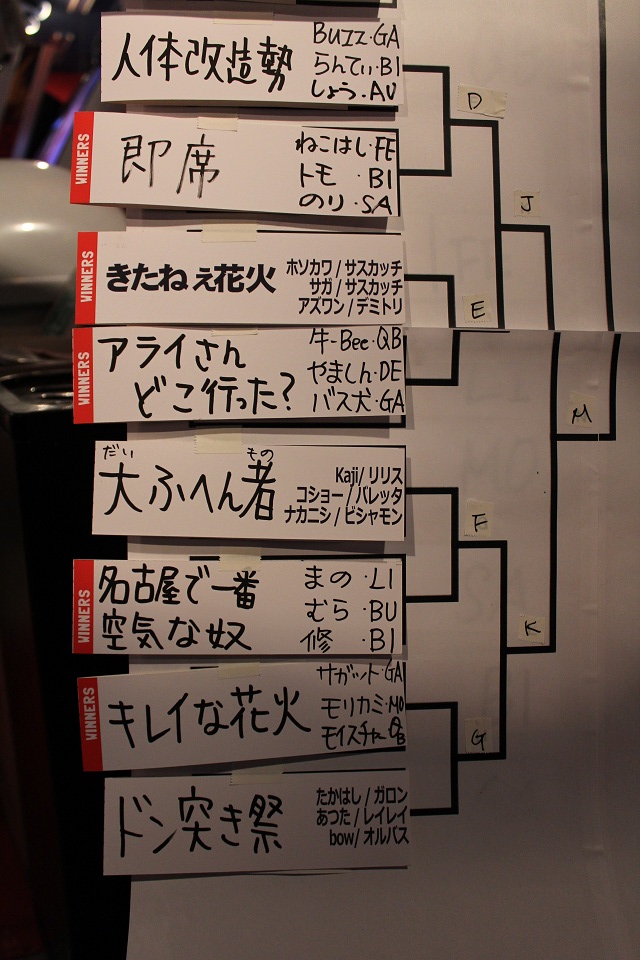 人体改造勢
BUZZ・GA
らんてぃ・BI
しょう・AU
D
WINNERS
即席
ねこはし・FE
トモ・BI
のり・SA
J
WINNERS
きたねぇ花火
ホソカワ/サスカッチ
サガ/サスカッチ
アズワン/デミトリ
E
WINNERS
アライさん
どこ行った?
牛-Bee・QB
やましん・DE
バス犬・GA
M
だい もの
大ふへん者
Kaji/リリス
コショー/バレッタ
ナカニシ/ビシャモン
F
WINNERS
名古屋で一番
空気な奴
まの・LI
むら・BU
修・BI
K
WINNERS
キレイな花火
サガット・GA
モリカミ・MO
モイスチャー・QB
G
ドン突き祭
たかはし/ガロン
あつた/レイレイ
bow/オルバス